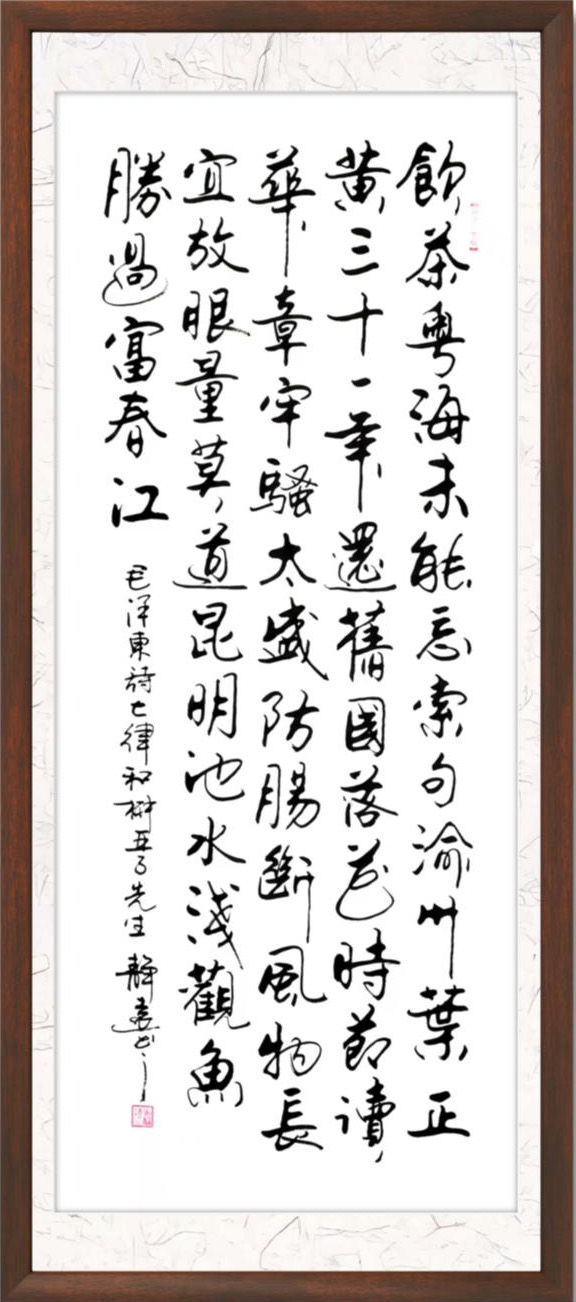 飲茶粵海未能忘索句渝州葉正
黃三十一年還舊國落花時節讀
華章牢騷太盛防腸斷風物長
宜放眼量莫道昆明池水淺觀魚
勝過富春江
毛泽東詩七律和柳亞子先生 靜书